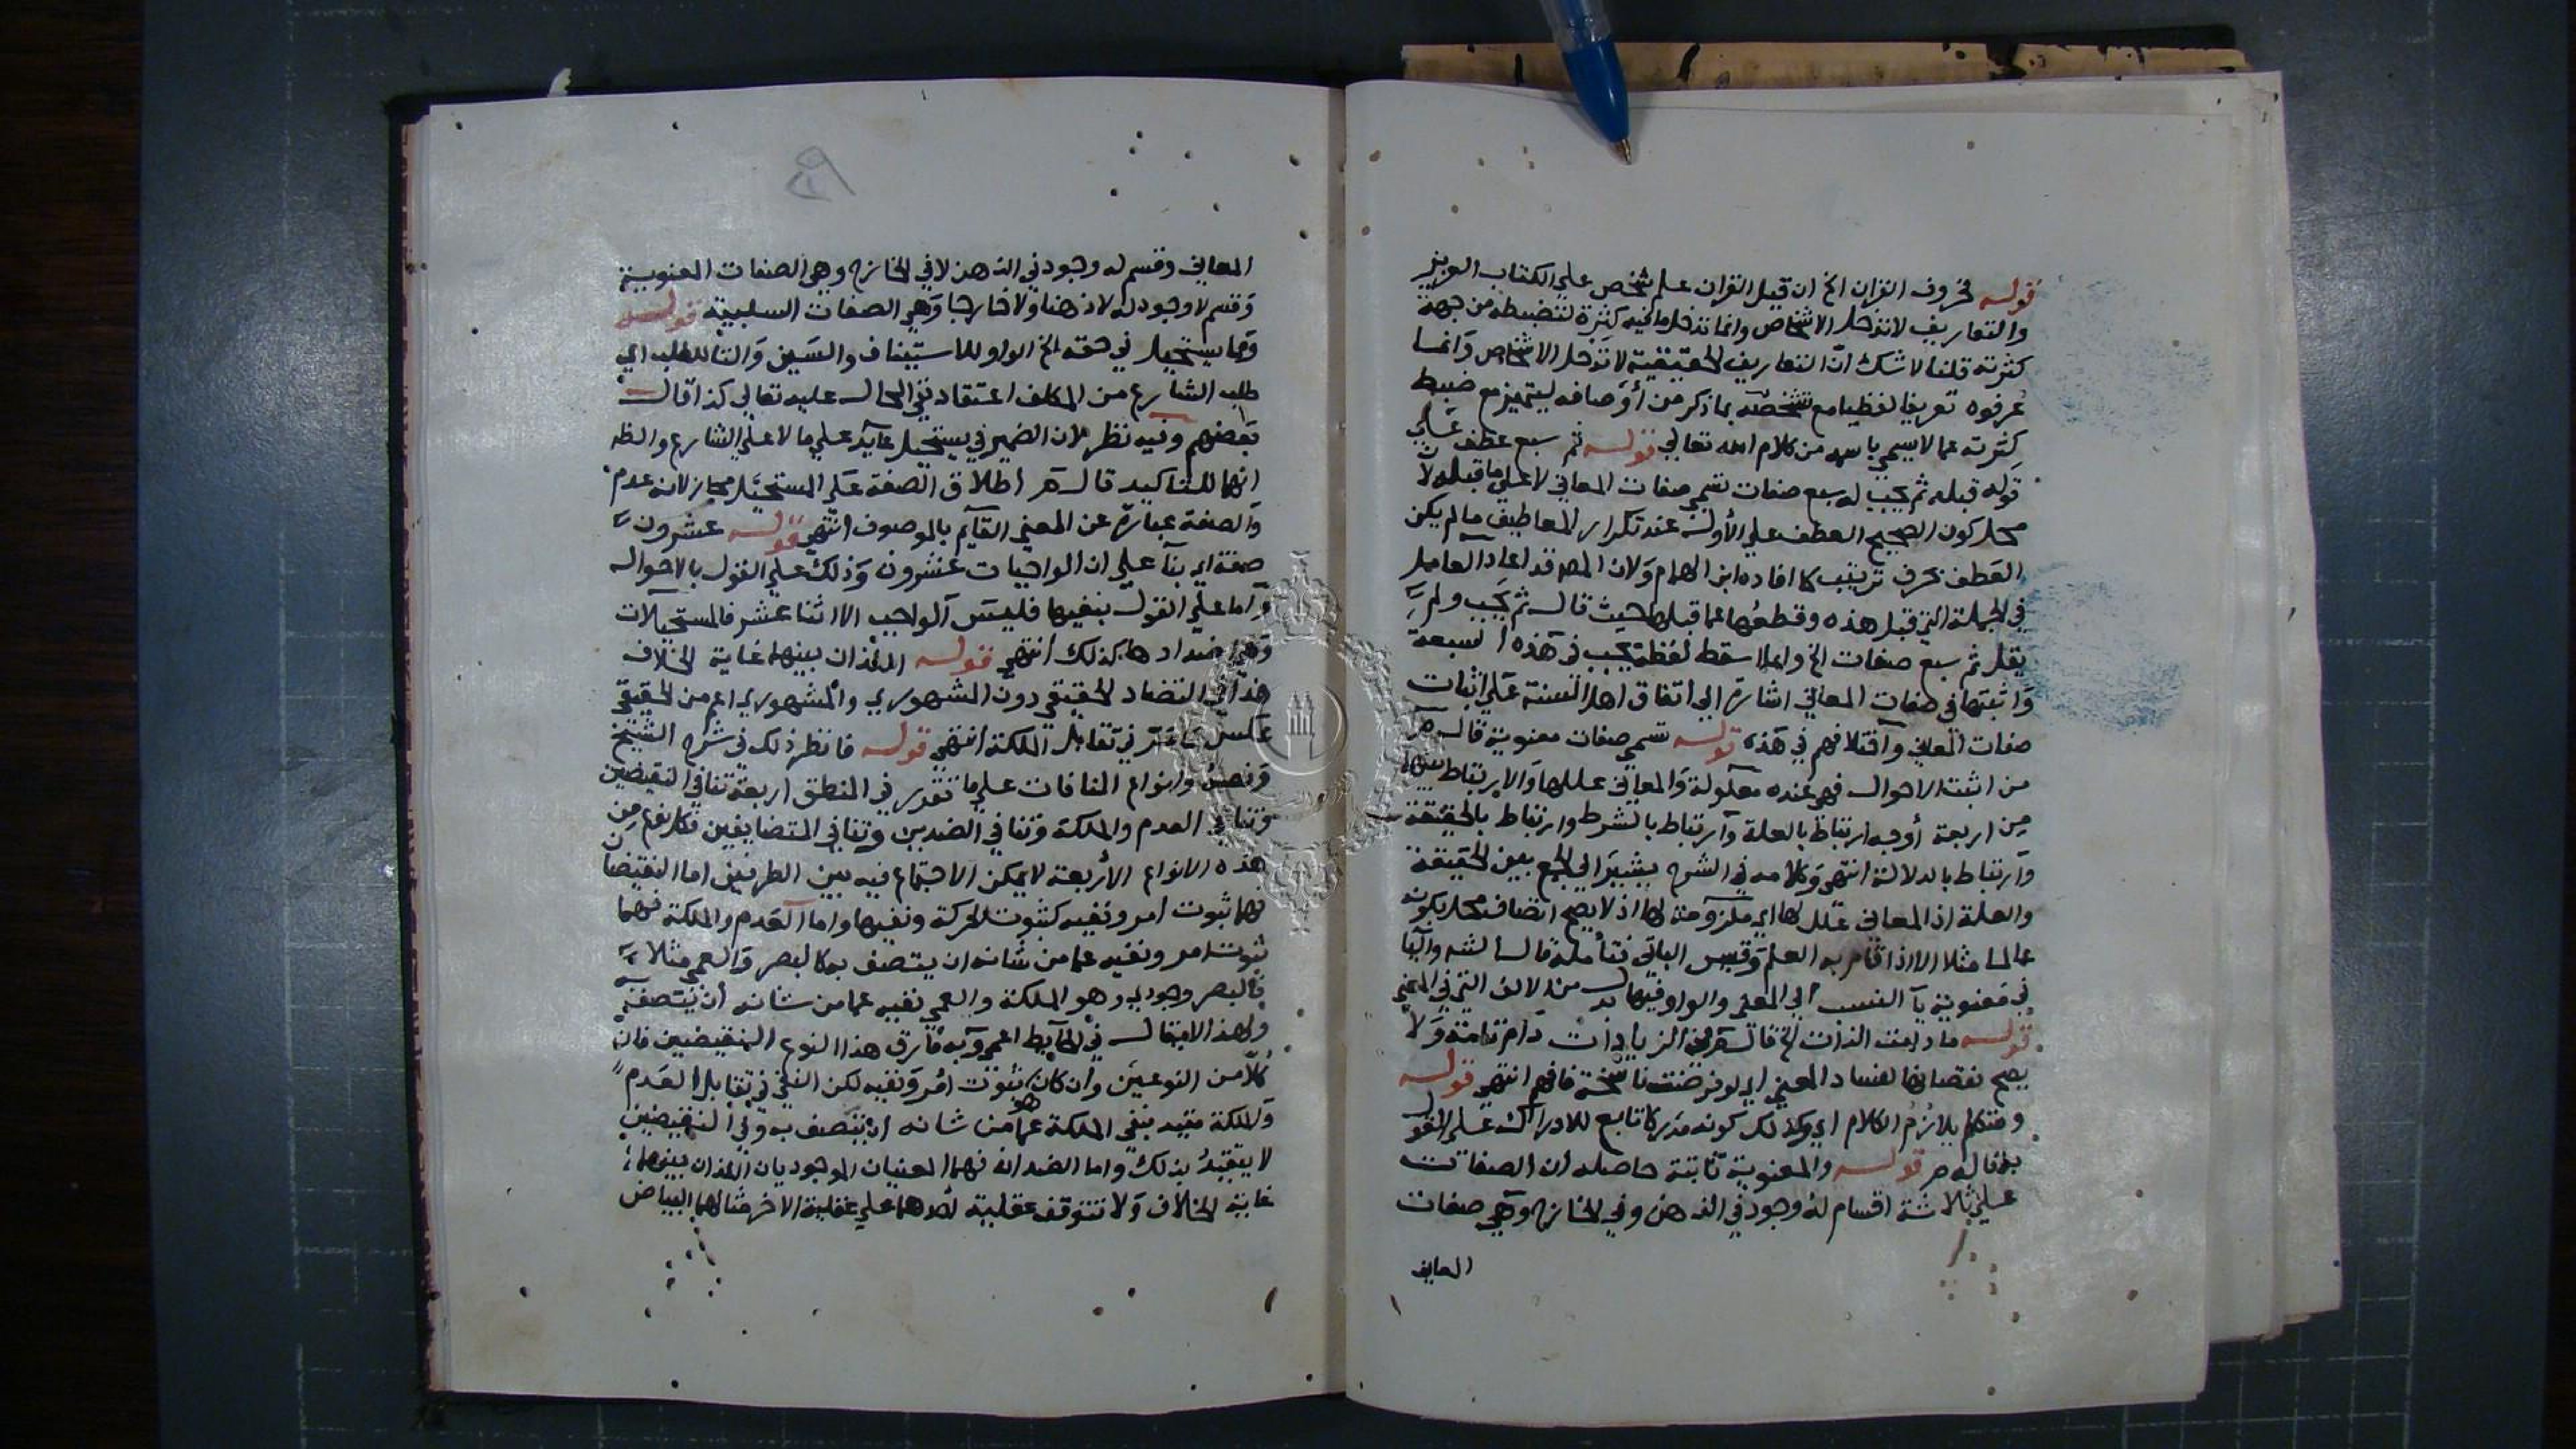 قوله فحروف القران الخ ان قيل القران علم شخص علي الكتاب العزيز
والتعاريف لا تدخل الاشخاص وانما تدخل ما فيه كثرة لتضبطه من جهة
كثرته قلنا لا شك ان التعاريف الحقيقية لا تدخل الاشخاص وانما
عرفوه تعريفا لفظيا مع تشخصه بما ذكر من أوصافه ليتميز مع ضبط
كثرته عما لا يسمي باسمه من كلام الله تعالي قوله ثم سبع عطف علي
قوله قبله ثم يجب له سبع صفات تسمي صفات المعاني لا علي ما قبله لان
محل كون الصحيح العطف علي الأول عند تكرار المعاطيف ما لم يكن
العطف بحرف ترتيب كما افاده ابن الهمام ولان المص قد اعاد العامل
في الجملة التي قبل هذه وقطعها عما قبلها حيث قال ثم يجب ولم
يقل ثم سبع صفات الخ وانما اسقط لفظة يجب في هذه السبعة
واثبتها في صفات المعاني اشارة الي اتفاق اهل السنة علي اثبات
صفات المعاني واختلافهم في هذه قوله تسمي صفات معنوية قال
من اثبت الاحوال فهي عنده معلولة والمعاني عللها والارتباط بينها
من اربعة أوجه ارتباط بالعلة وارتباط بالشرط وارتباط بالحقيقة
وارتباط بالدلالة انتهي وكلامه في الشرح يشير الي الجمع بين الحقيقة
والعلة اذ المعاني علل لها اي ملزومة لها اذ لا يصح اتصاف محل بكونه
عالما مثلا الا اذا قام به العلم وقس الباقي فتأمله قال الش واليا
في معنوية يآ النسب الي المعني والواو فيها بدل من الالف التي في المعني
قوله ما دامت الذات الخ في الزيادات دام تامة ولا
يصح نقصانها لفساد المعني اي لو فرضت ناسخة فافهم انتهي قوله
ومتكلم يلازم الكلام اي وكذلك كونه مدركا تابع للادراك علي القول
به قاله م ر قوله والمعنوية ثابتة حاصله أن الصفات
علي ثلاثة اقسام له وجود في الذهن وفي الخارج وهي صفات
المعاني
المعاني وقسم له وجود في الذهن لا في الخارج وهي الصفات المعنوية
وقسم لا وجود له لا ذهنا ولا خارجا وهي الصفات السلبية قوله
ومما يستحيل في حقه الخ الواو للاستيناف والسين والتا للطلب اي
طلب الشارع من المكلف اعتقاد نفي المحال عليه تعالي كذا قال
بعضهم وفيه نظر لان الضمير في يستحيل عآيد علي ما لا علي الشارع والظ
انها للتاكيد قال اطلاق الصفة علي المستحيل مجاز لانه عدم
والصفة عبارة عن المعني القآيم بالموصوف انتهي قوله عشرون
صفة اي بنآ علي ان الواجبات عشرون وذلك علي القول بالاحوال
واما علي القول بنفيها فليس الواجب الا اثنا عشر فالمستحيلات
وهي اضدادها كذلك انتهي قوله اللذان بينهما غاية الخلاف
هذا في التضاد الحقيقي دون المشهوري والمشهوري اعم من الحقيقي
عكس في تقابل الملكة انتهي قوله فانظر ذلك في شرح الشيخ
ونصه وانواع المنافات علي ما تقرر في المنطق اربعة تنافي النقيضين
وتنافي العدم والملكة وتنافي الضدين وتنافي المتضايفين فكل نوع من
هذه الانواع الأربعة لا يمكن الاجتماع فيه بين الطرفين اما النقيضان
فهما ثبوت امر ونفيه كثبوت الحركة ونفيها واما العدم والملكة فهما
ثبوت امر ونفيه عما من شانه ان يتصف به كالبصر والعمي مثلا
فالبصر وجودي وهو الملكة والعمي نفيه عما من شانه أن يتصف به
ولهذا لا يقال في الحآيط اعمي وبه فارق هذا النوع النقيضين فان
كلا من النوعين وأن كان هو ثبوت أمر ونفيه لكن النفي في تقابل العدم
والملكة مقيد بنفي الملكة عما من شانه ان يتصف به وفي النقيضين
لا يتقيد بذلك واما الضدان فهما المعنيان الوجوديان اللذان بينهما
غاية الخلاف ولا تتوقف عقلية احدهما علي عقلية الاخر مثالهما البياض